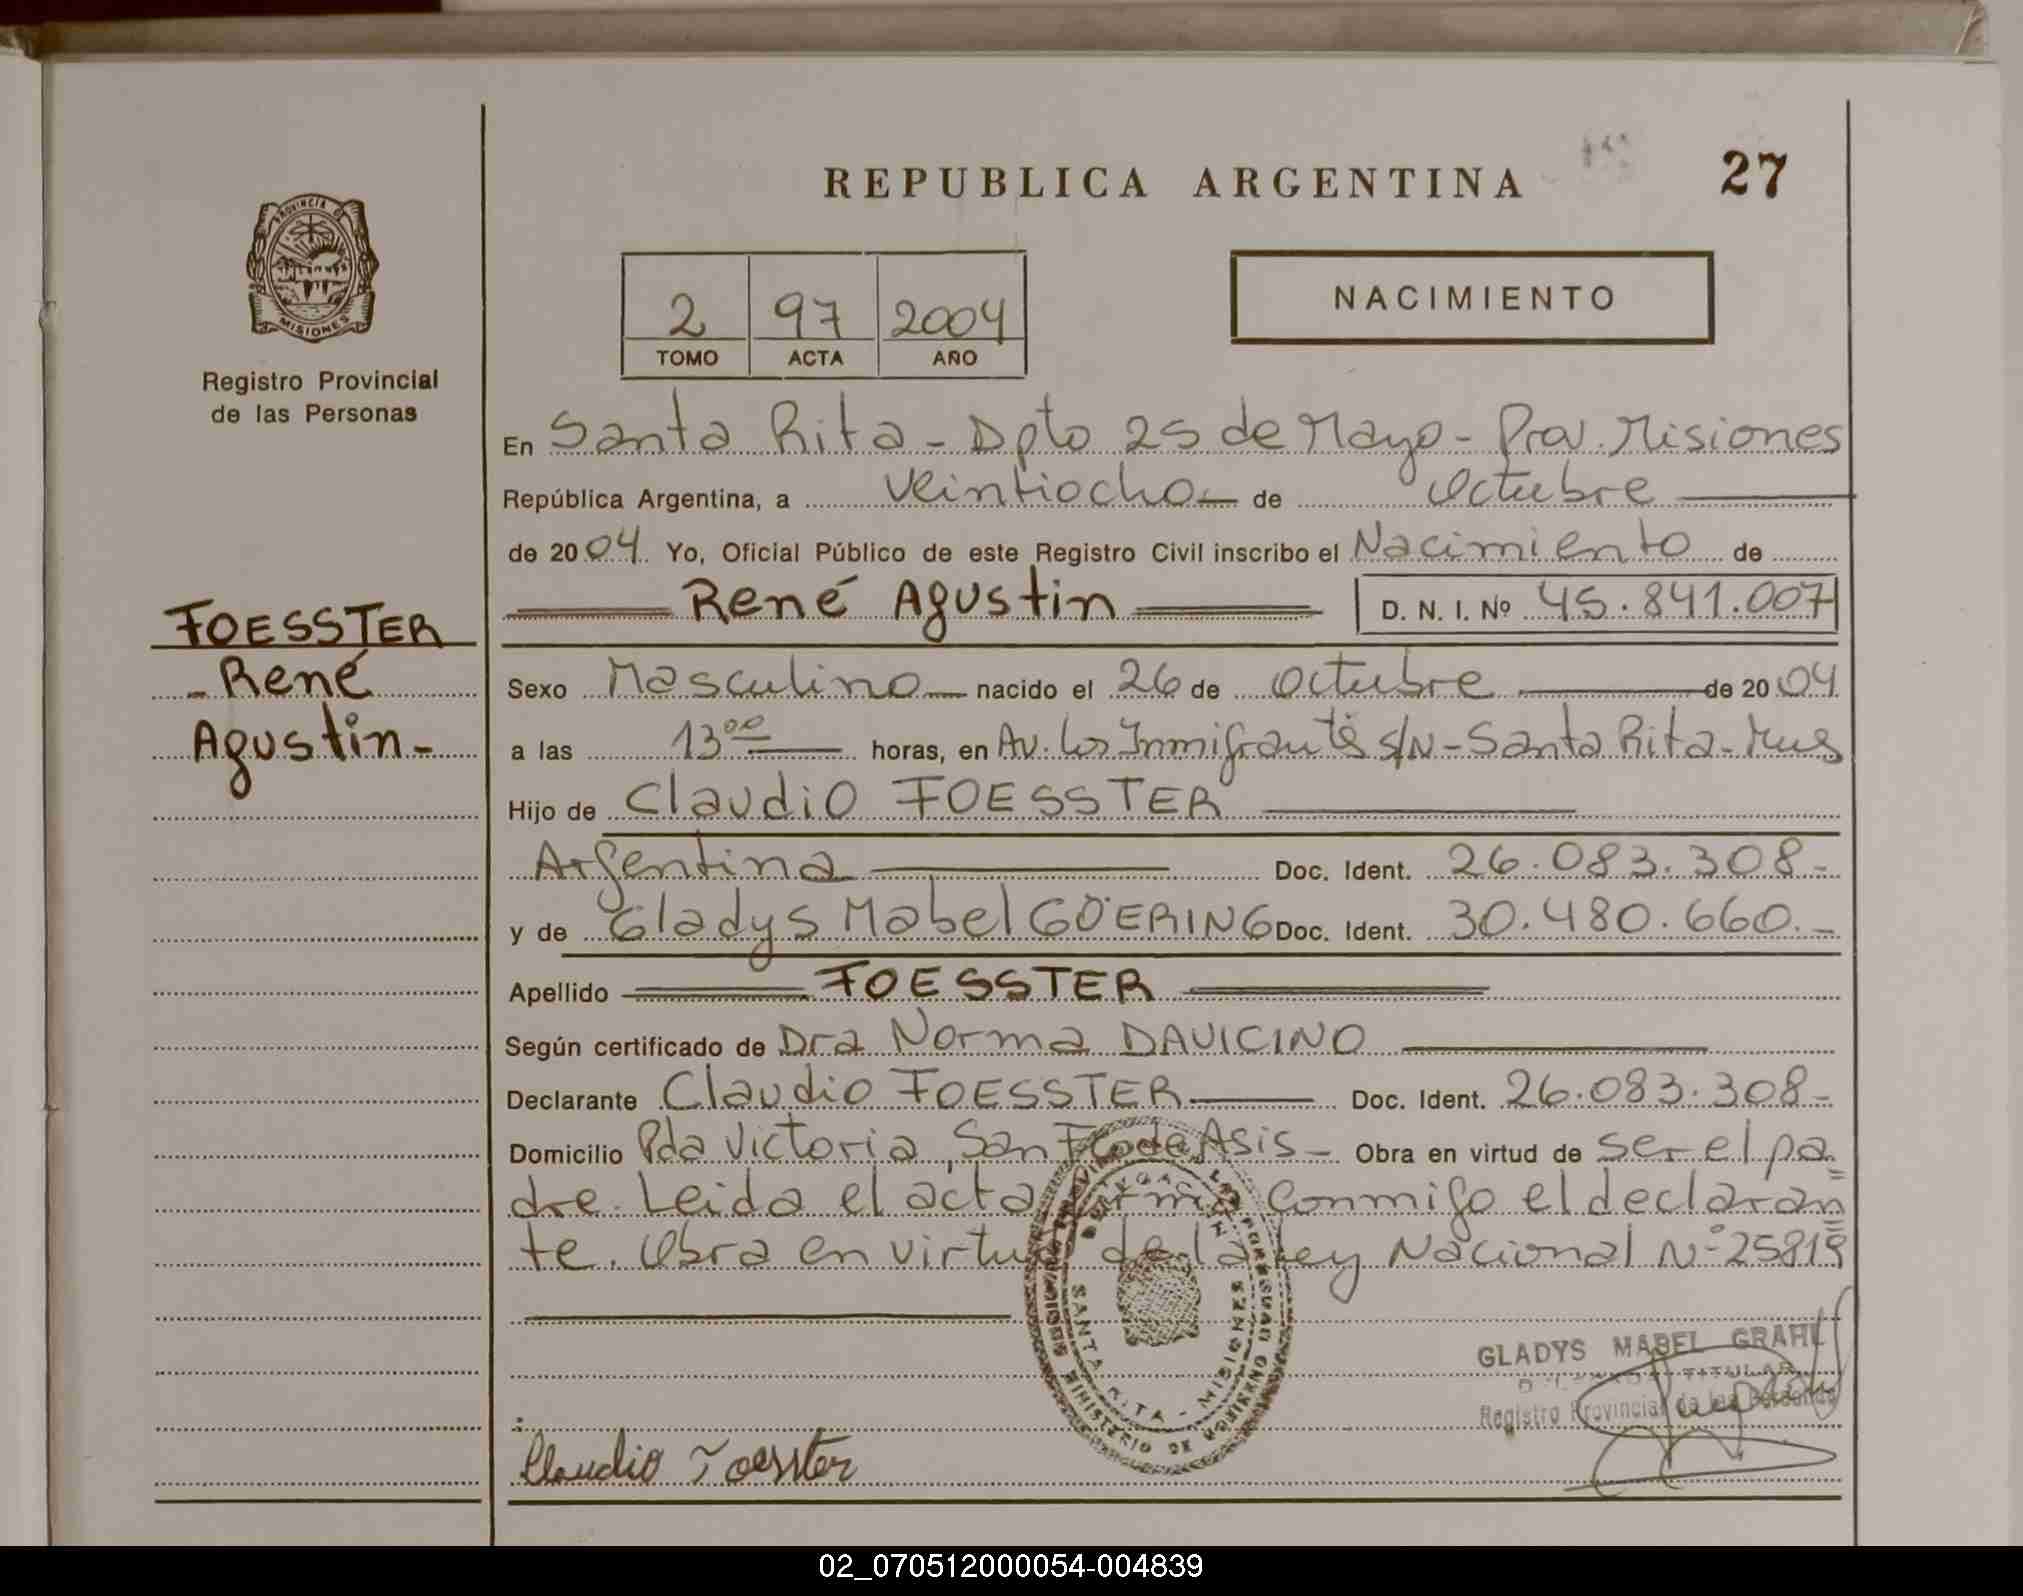 REPUBLICA ARGENTINA
27
PROVINCIA DE
MISIONES
Registro Provincial
de las Personas
2 97 2004
TOMO ACTA AÑO
NACIMIENTO
En Santa Rita - Dpto 25 de Mayo - Prov. Misiones
República Argentina, a veintiocho de Octubre
de 2004 Yo, Oficial Público de este Registro Civil inscribo el Nacimiento de
René Agustin D. N. I. Nº 45.841.007
FOESSTER
- René
Agustin -
Sexo Masculino nacido el 26 de Octubre de 2004
a las 13 00 horas, en Av. los Inmigrantes s/N - Santa Rita - Mnes
Hijo de Claudio FOESSTER
Argentina Doc. Ident. 26.083.308 -
y de Gladys Mabel GÖERING Doc. Ident. 30.480.660. -
Apellido FOESSTER
Según certificado de Dra Norma DAVICINO
Declarante Claudio FOESSTER Doc. Ident. 26.083.308 -
Domicilio Pda Victoria, San Fco de Asis - Obra en virtud de ser el pa=
dre. Leida el acta firma conmigo el declaran=
te. Obra en virtud de la Ley Nacional Nº 25819
SANTA RITA - MISIONES
MINISTERIO DE GOBIERNO
GLADYS MABEL GRAHL
TITULAR
Registro Provincial de las Personas
Claudio Foesster
02_070512000054-004839